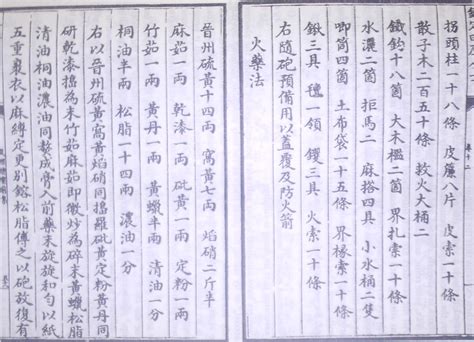 拐頭柱一十八條 皮簾八片 皮索一十條
散子木二百五十條 救火大桶二
鐵鈎十八箇 大木檻二箇 界扎索一十條
水濃二箇 拒馬二 麻搭四具 小水桶二隻
唧筒四箇 土布袋一十五條 界椽索一十條
鍬三具 氈一領 钁三具 火索一十條
右隨砲預備用以蓋覆及防火箭
火藥法
晉州硫黃十四兩 窩黃七兩 焰硝二斤半
麻茹一兩 乾漆一兩 砒黃一兩 定粉一兩
竹茹一兩 黃丹一兩 黃蠟半兩 清油一分
桐油半兩 松脂一十四兩 濃油一分
右以晉州硫黃窩黃焰硝同搗羅砒黃定粉黃丹同
研乾漆搗為末竹茹麻茹即微炒為碎末黃蠟松脂
清油桐油濃油同熬成膏入前藥末旋旋和勻以紙
五重裹衣以麻縛定更別鎔松脂傅之以砲放復有